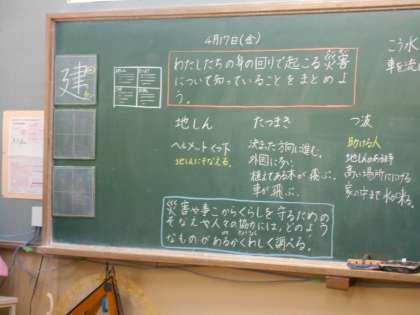 4月17日(金)
わたしたちの身の回りで起こる災害
について知っていることをまとめよ
う。
建
地しん
ヘルメット
地しんにそなえる。
たつまき
決まった方向に進む。
外国に多い
植えてある木が飛ぶ。
車が飛ぶ。
つ波
助ける人
地しんのあと
高い場所ににげる
家の中まで水が来る。
こう水
車を流し
災害や事こからくらしを守るための
そなえや人々の協力には、どのよう
なものがあるかくわしく調べる。